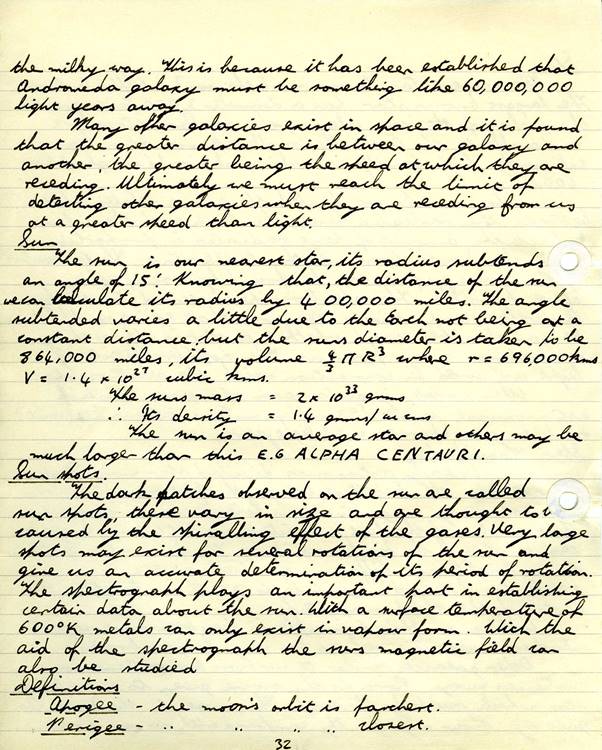 the milky way. This is because it has been established that
Andromeda galaxy must be something like 60,000,000
light years away.
Many other galaxies exist in space and it is found
that the greater distance is between our galaxy and
another, the greater being the speed at which they are
receding. Ultimately we must reach the limit of
detecting other galaxies when they are receding from us
at a greater speed than light.
Sun
The sun is our nearest star, its radius subtends
an angle of 15'. Knowing that, the distance of the sun
we can calculate its radius by 400,000 miles. The angle
subtended varies a little due to the Earth not being at a
constant distance, but the suns diameter is taken to be
864,000 miles, its volume 4/3 π R³ where r = 696,000 kms
V = 1.4 x 10²⁷ cubic kms.
The suns mass = 2 x 10³³ gmms
∴ Its density = 1.4 gmms/cu cms
The sun is an average star and others may be
much larger than this E.G ALPHA CENTAURI.
Sun spots.
The dark patches observed on the sun are called
sun spots, these vary in size and are thought to be
caused by the spiralling effect of the gases. Very large
spots may exist for several rotations of the sun and
give us an accurate determination of its period of rotation.
The spectrograph plays an important part in establishing
certain data about the sun. With a surface temperature of
600°K metals can only exist in vapour form. With the
aid of the spectrograph the suns magnetic field can
also be studied
Definitions
Apogee - the moon's orbit is farthest.
Perigee - " " " " closest.
32